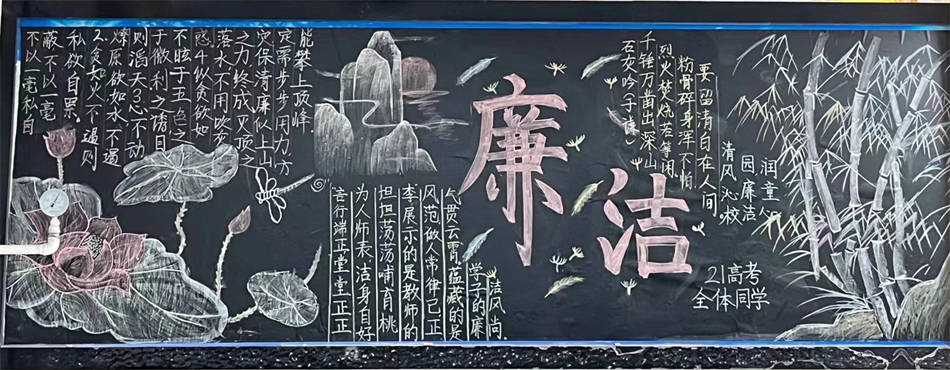 不以一毫私自
蔽不以一毫
私欲自累.
2.贪如火不遏则
燎原欲如水不遏
则滔天3心不动
于微利之诱目
不眩于五色之
惑4似贪欲如
落水不用吹灰
之力终成灭顶之
灾保清廉似上山
定需步步用力方
能攀上顶峰.
廉洁
石灰吟(于谦)
千锤万凿出深山
烈火焚烧若等闲
粉骨碎身浑不怕
要留清白在人间。
清风沁校
园廉洁
润童心
言行端正堂堂正正
为人师表洁身自好
坦坦荡荡哺育桃
李展示的是教师的
风范做人常律己正
气贯云霄蕴藏的是
学子的廉
洁风尚.
21高考
全体同学